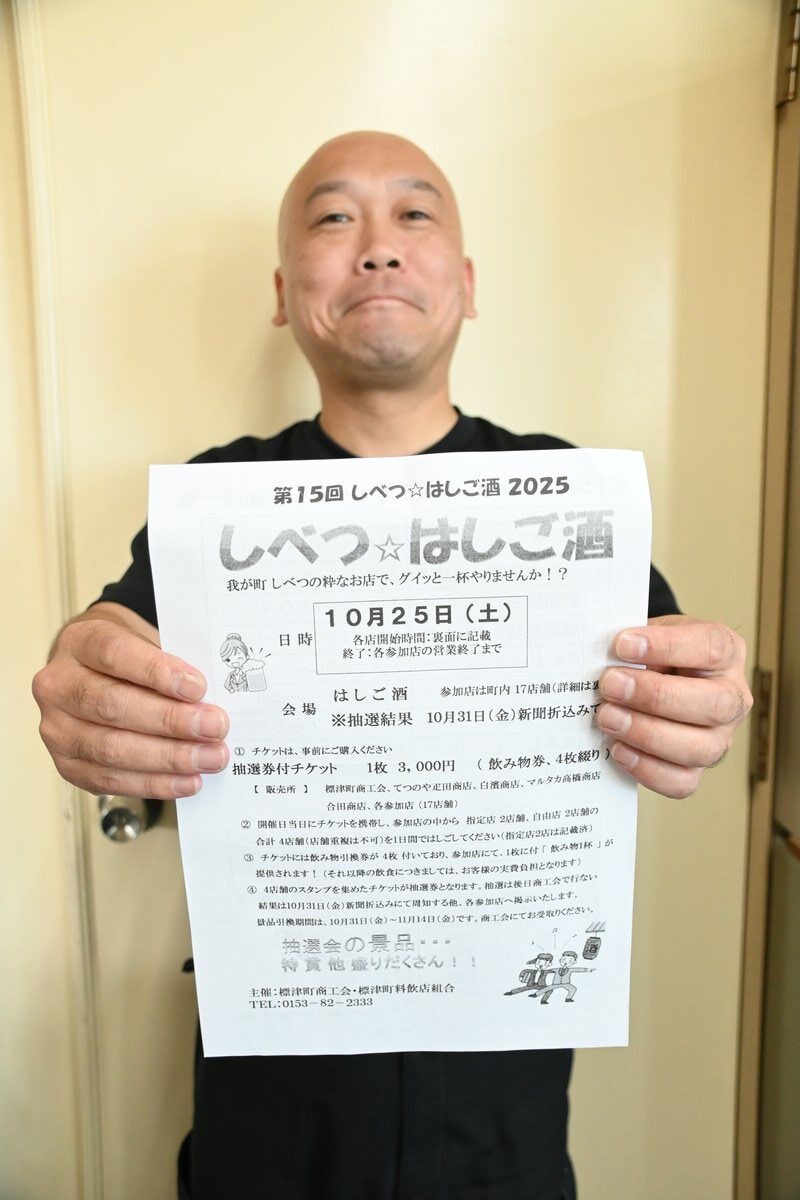 第15回 しべつ☆はしご酒 2025
しべつ☆はしご酒
我が町 しべつの粋なお店で、グイッと一杯やりませんか！？
日時
10月25日（土）
各店開始時間：裏面に記載
終了：各参加店の営業終了まで
会場
はしご酒 参加店は町内 17店舗（詳細は裏
※抽選結果 10月31日（金）新聞折込みで
① チケットは、事前にご購入ください
抽選券付チケット 1枚 3,000円 （ 飲み物券、4枚綴り ）
【 販売所 】 標津町商工会、てつのや疋田商店、白濱商店、マルタカ高橋商店
合田商店、各参加店（17店舗）
② 開催日当日にチケットを携帯し、参加店の中から 指定店 2店舗、自由店 2店舗の
合計 4店舗（店舗重複は不可）を1日間ではしごしてください（指定店2店は記載済）
③ チケットには飲み物引換券が 4枚 付いており、参加店にて、1枚に付「 飲み物1杯 」が
提供されます！（それ以降の飲食につきましては、お客様の実費負担となります）
④ 4店舗のスタンプを集めたチケットが抽選券となります。抽選は後日商工会で行ない
結果は10月31日（金）新聞折込みにて周知する他、各参加店へ掲示いたします。
景品引換期間は、10月31日（金）～11月14日（金）です。商工会にてお受取りください。
抽選会の景品・・・
特賞他盛りだくさん！！
酒
主催：標津町商工会・標津町料飲店組合
TEL：0153－82－2333